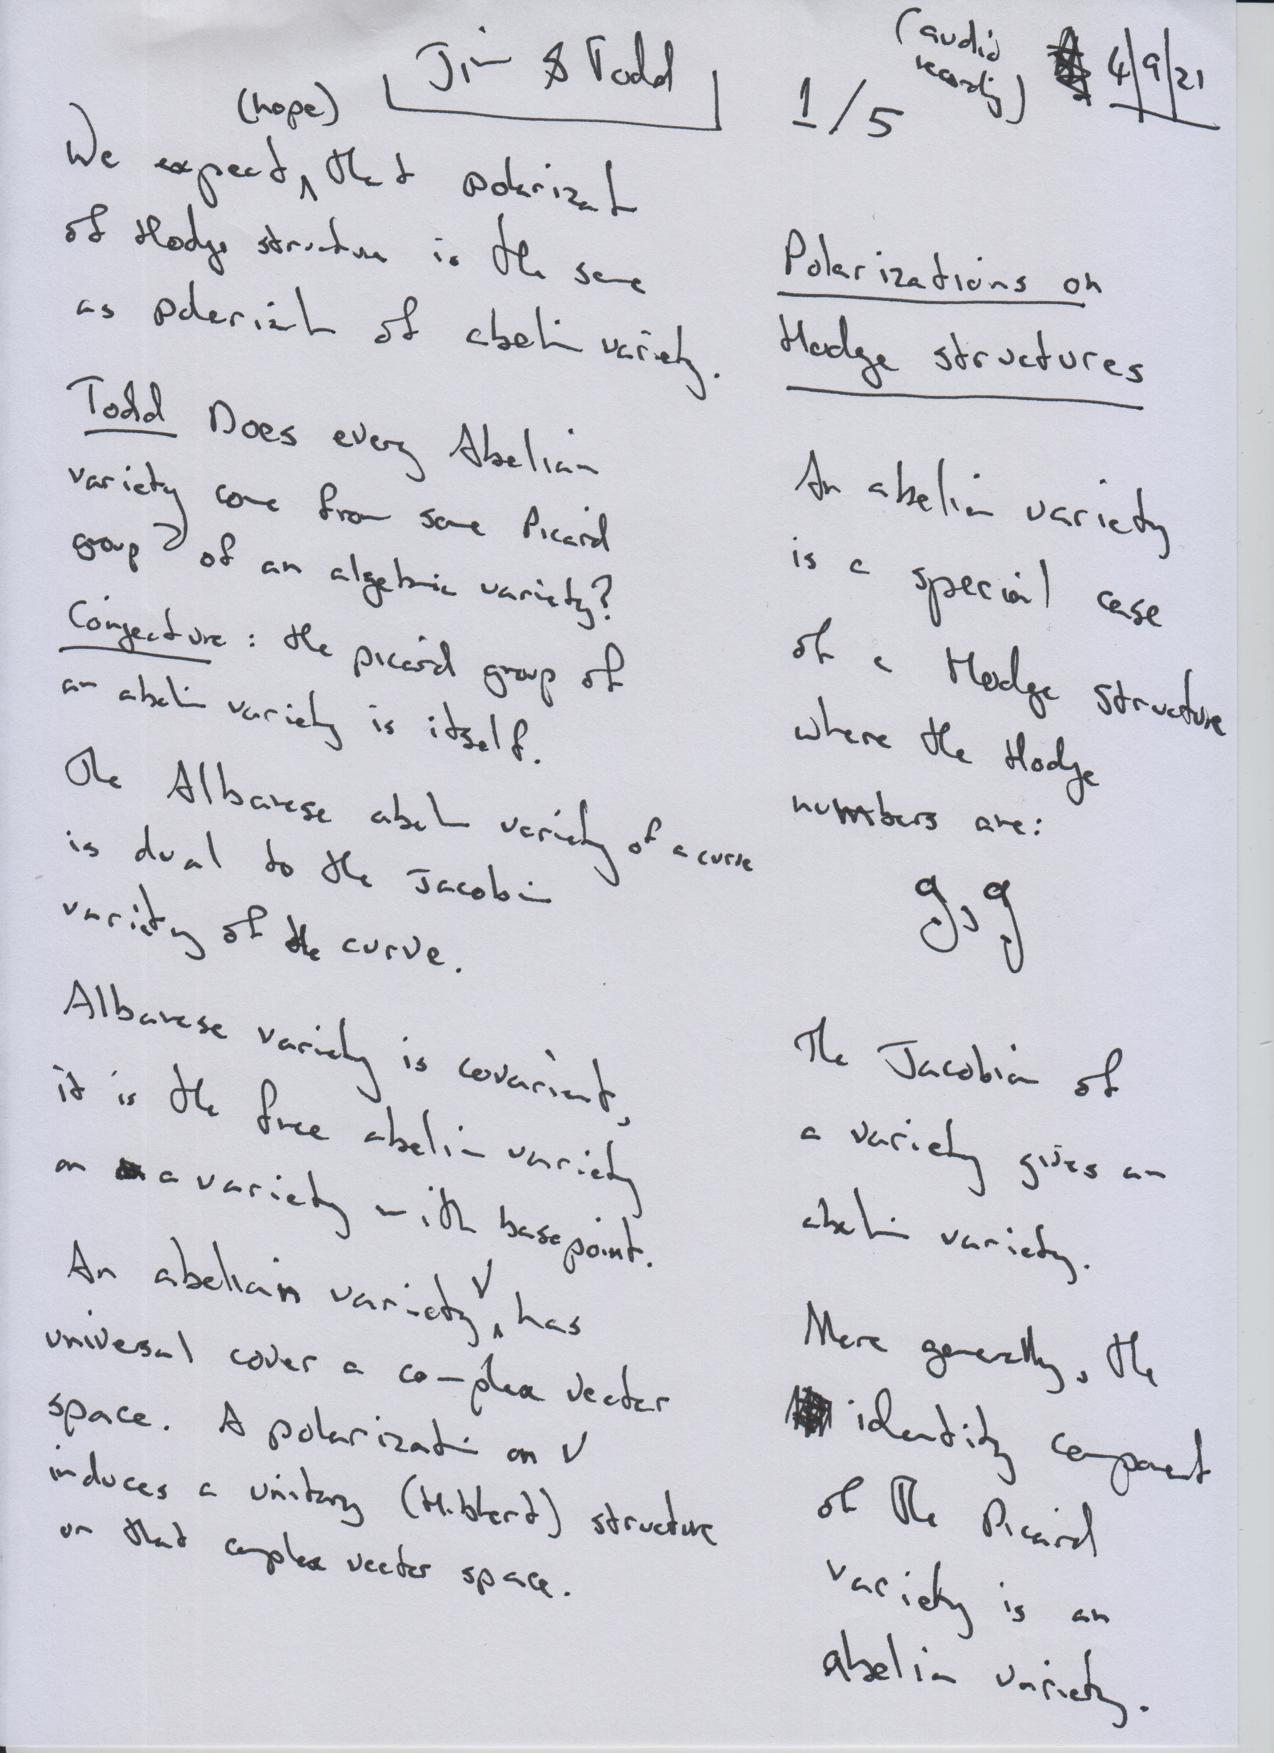 Jim & Todd
(audio
recording)
4/9/21
1/5
(hope)
We expect ^ that polarizat
of Hodge structure is the same
as polarizat of abelian variety.
Todd Does every Abelian
variety come from some Picard
group of an algebraic variety?
Conjecture: the picard group of
an abelian variety is itself.
The Albanese abelian variety of a curve
is dual to the Jacobian
variety of the curve.
Albanese variety is covariant,
it is the free abelian variety
on a variety with basepoint.
An abelian variety ^ V has
universal cover a complex vector
space. A polarization on V
induces a unitary (Hilbert) structure
on that complex vector space.
Polarizations on
Hodge structures
An abelian variety
is a special case
of a Hodge structure
where the Hodge
numbers are:
g, g
The Jacobian of
a variety gives an
abelian variety.
More generally, the
identity component
of the Picard
variety is an
abelian variety.